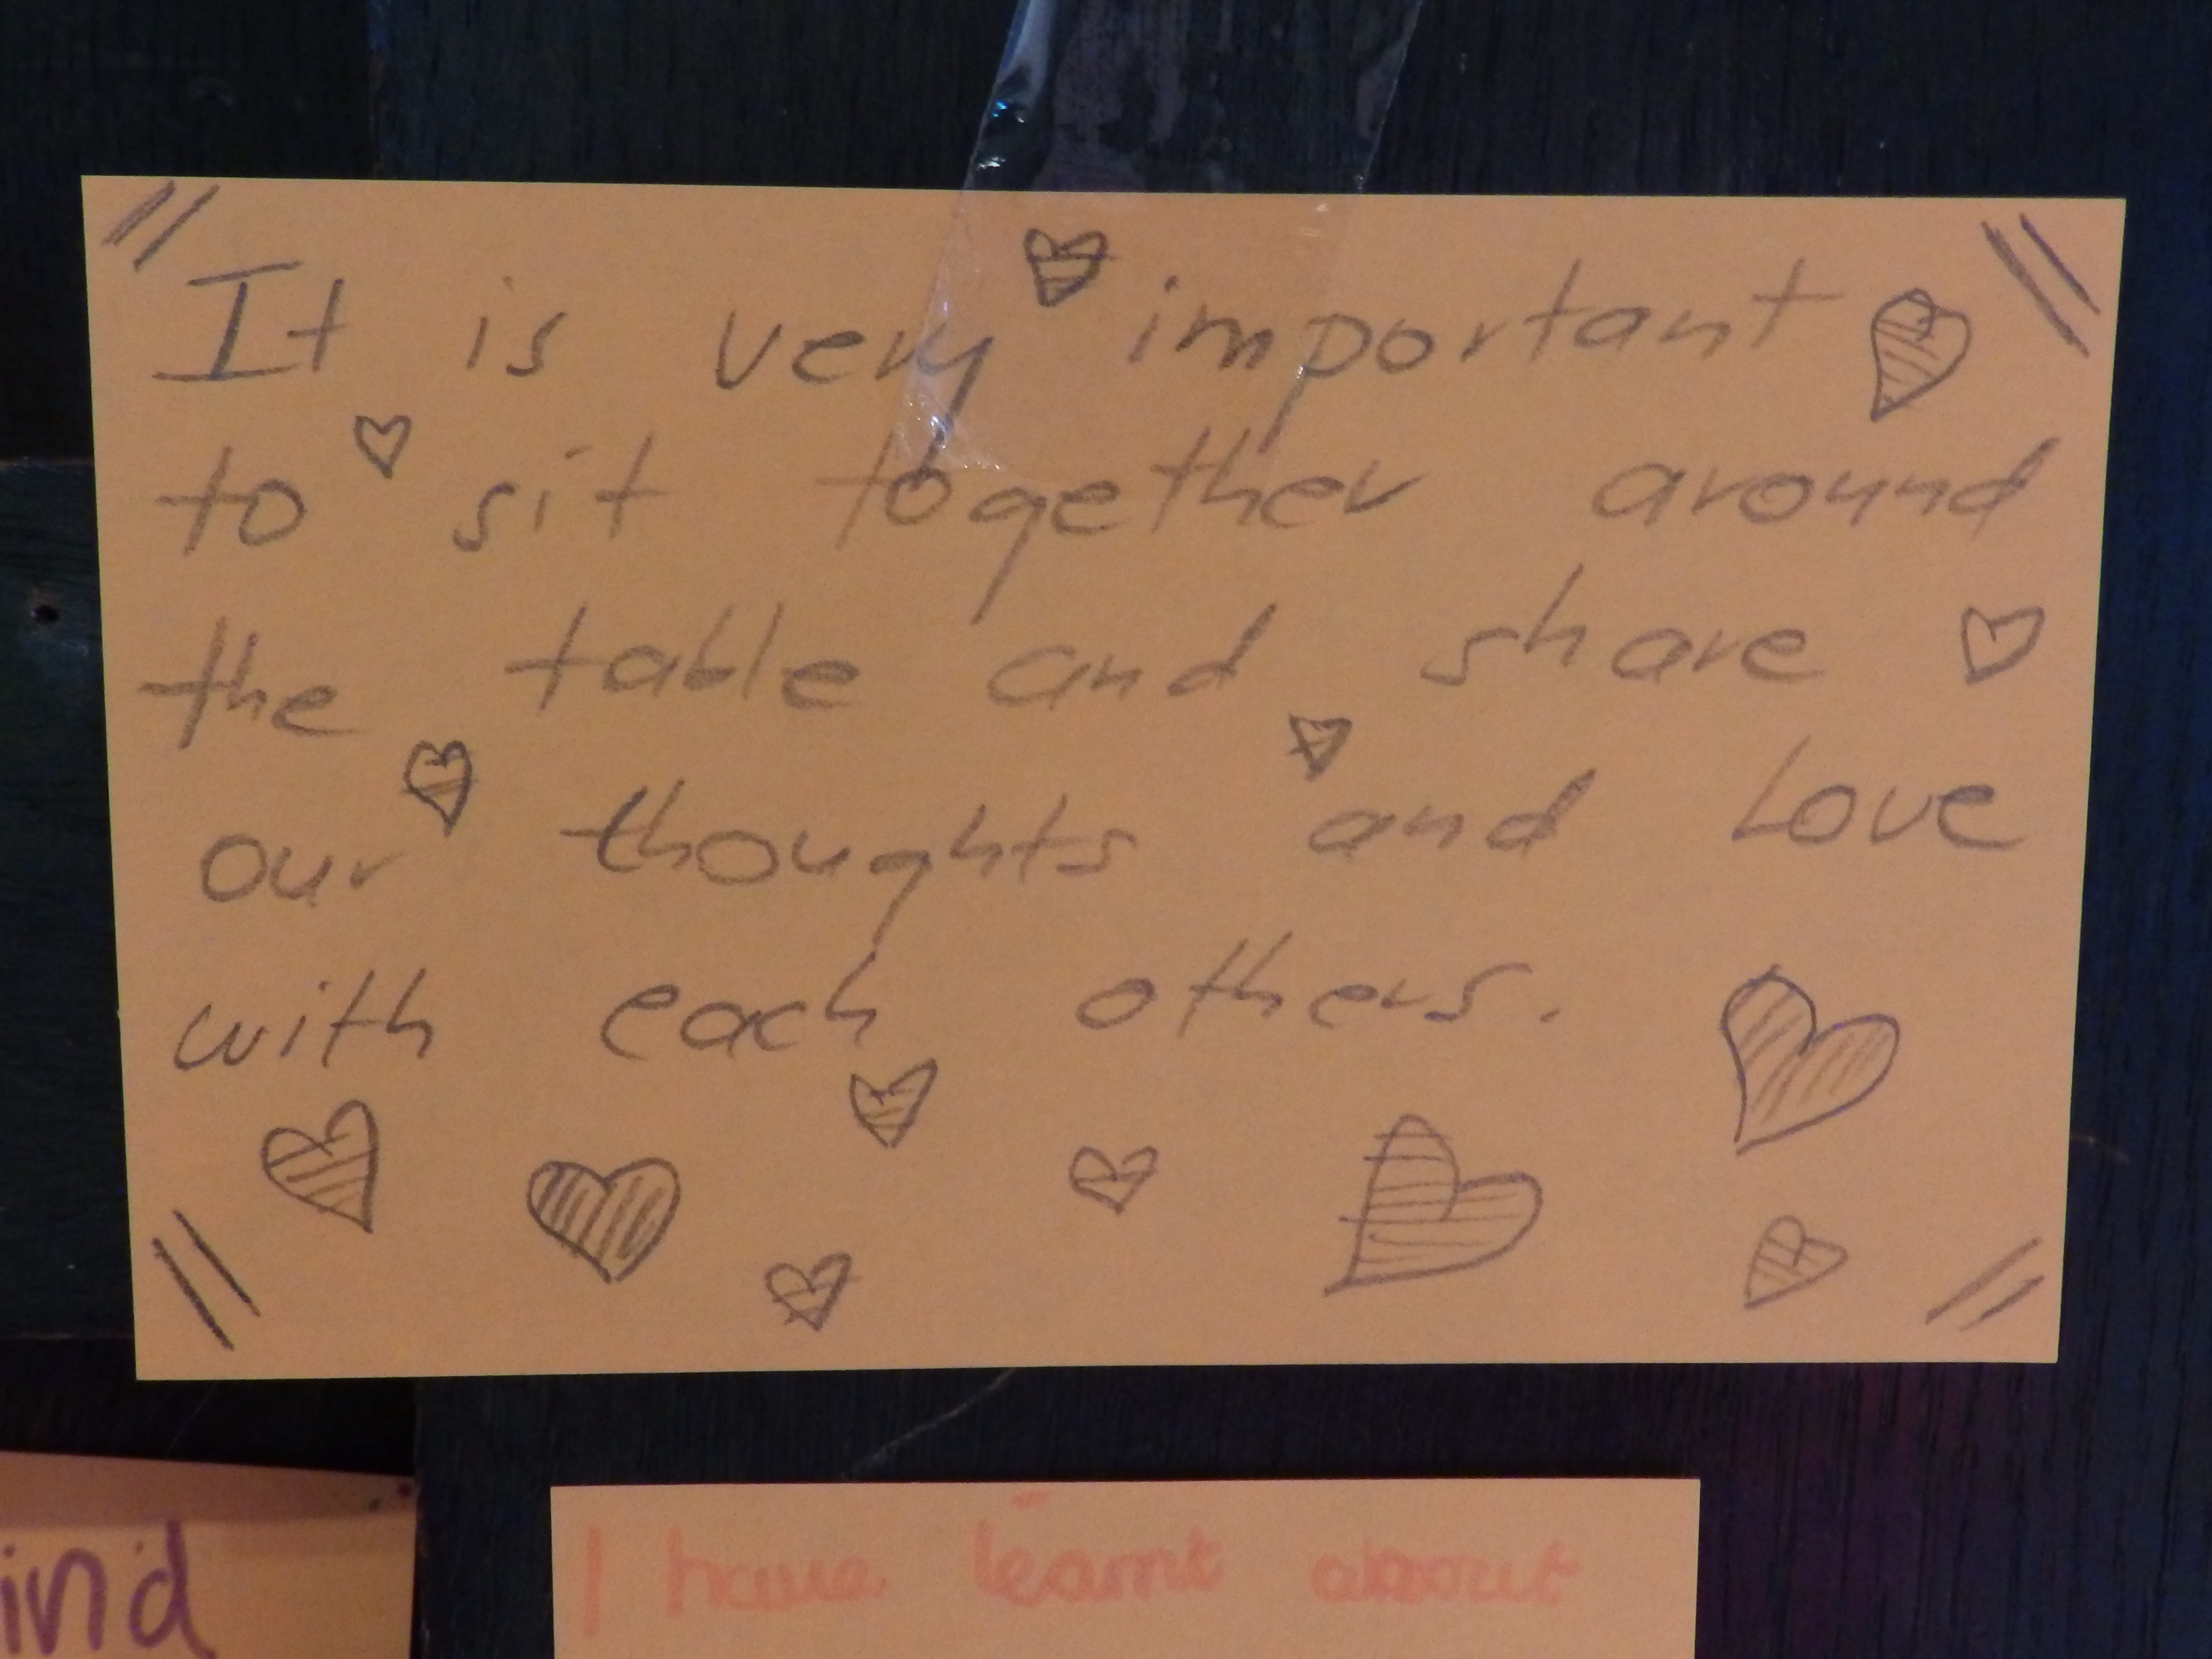 It is very important
to sit together around
the table and share
our thoughts and Love
with each others.
ind
I have learnt about